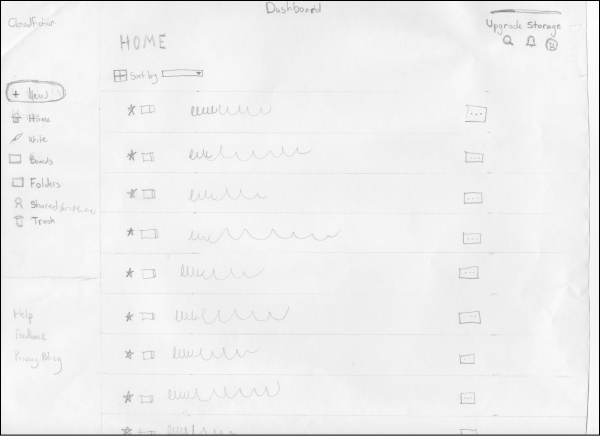 Dashboard
CloudFiction
Upgrade Storage
B
HOME
Sort by
+ New
Home
Write
Boards
Folders
Shared with me
Trash
Help
Feedback
Privacy Policy